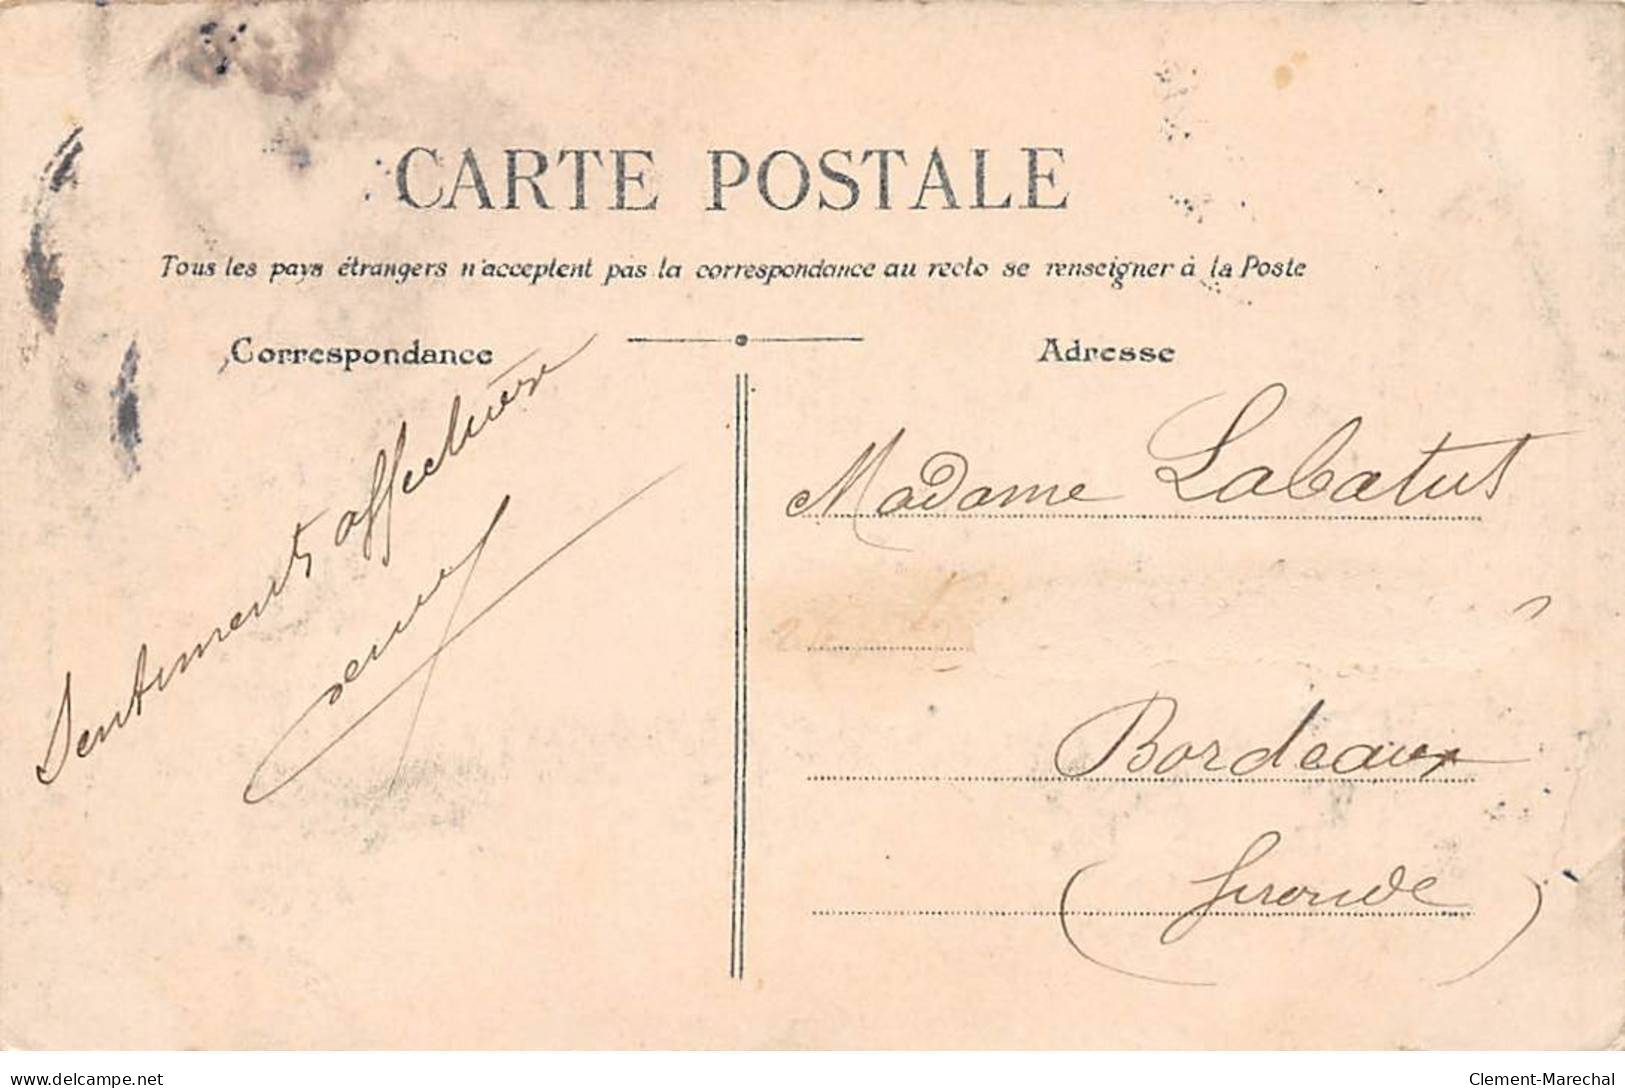 CARTE POSTALE
Tous les pays étrangers n'acceptent pas la correspondance au recto se renseigner à la Poste
Correspondance
Adresse
Sentiments affectueux
Madame Labatut
Bordeaux
(Gironde)
delcampe.net
Clement-Marechal